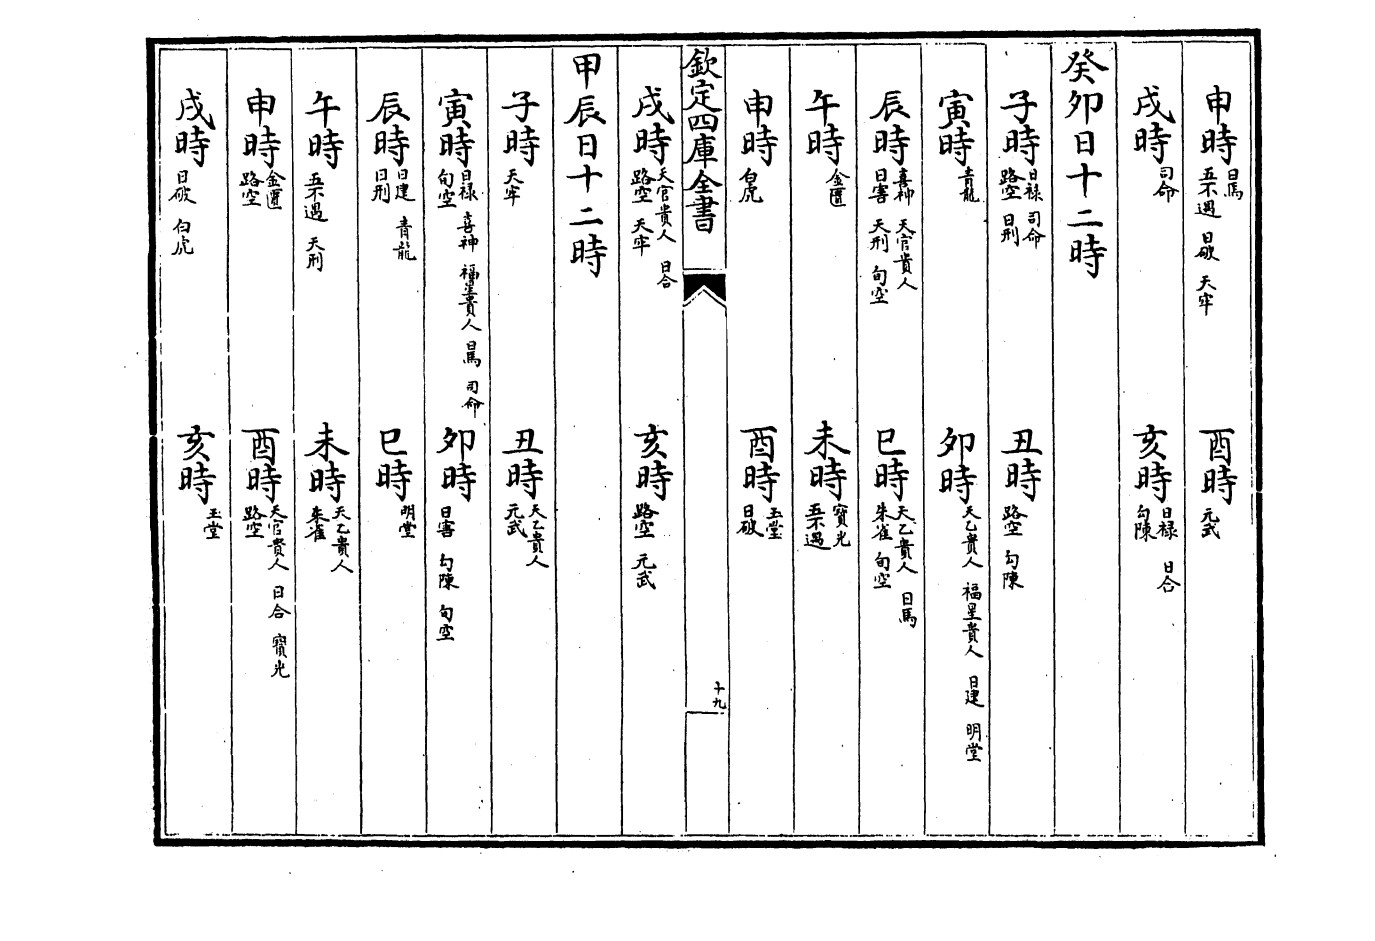 申時日馬五不遇 日破 天牢 酉時元武
戌時司命 亥時日禄勾陳 日合
癸卯日十二時
子時日禄 司命路空 日刑 丑時路空 勾陳
寅時青龍 卯時天乙貴人 福星貴人 日建 明堂
辰時喜神 天官貴人日害 天刑 旬空 巳時天乙貴人 日馬朱雀 旬空
午時金匱 未時寶光五不遇
申時白虎 酉時玉堂日破
戌時天官貴人 日合路空 天牢 亥時路空 元武
欽定四庫全書
十九
甲辰日十二時
子時天牢 丑時天乙貴人元武
寅時日禄 喜神 福星貴人 日馬 司命旬空 卯時日害 勾陳 旬空
辰時日建 青龍日刑 巳時明堂
午時五不遇 天刑 未時天乙貴人朱雀
申時金匱路空 酉時天官貴人 日合 寶光路空
戌時日破 白虎 亥時玉堂